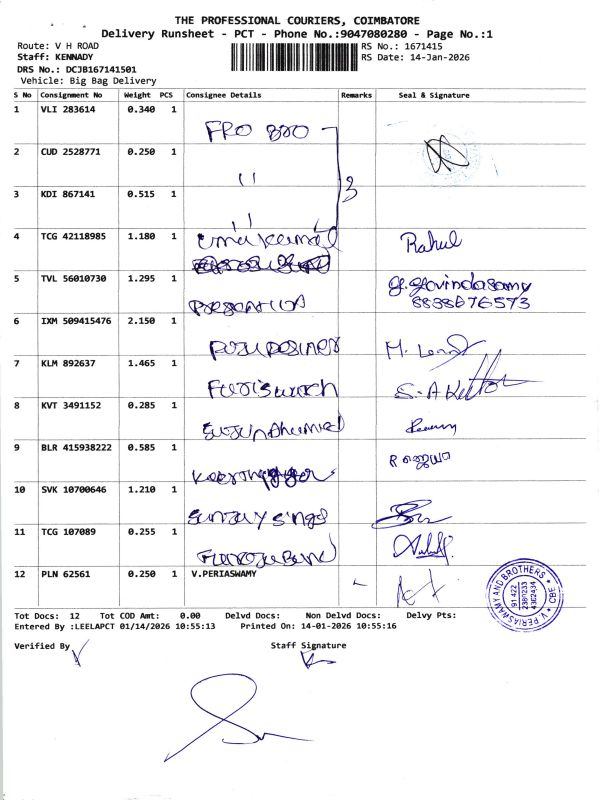 THE PROFESSIONAL COURIERS, COIMBATORE
Delivery Runsheet - PCT - Phone No.:9047080280 - Page No.:1
Route: V H ROAD
RS No.: 1671415
Staff: KENNADY
RS Date: 14-Jan-2026
DRS No.: DCJB167141501
Vehicle: Big Bag Delivery
S No Consignment No Weight PCS Consignee Details Remarks Seal & Signature
1 VLI 283614 0.340 1
FRO
2 CUD 2528771 0.250 1
"
3 KDI 867141 0.515 1
3
"
4 TCG 42118985 1.180 1
Rahul
5 TVL 56010730 1.295 1
G. Govindasamy
8838676573
6 IXM 509415476 2.150 1
7 KLM 892637 1.465 1
8 KVT 3491152 0.285 1
9 BLR 415938222 0.585 1
10 SVK 10700646 1.210 1
Sunjay Sings
11 TCG 107089 0.255 1
12 PLN 62561 0.250 1 V.PERIASWAMY
V. PERIASWAMY AND BROTHERS * CBE *
91 422
2380233
4362434
Tot Docs: 12 Tot COD Amt: 0.00 Delvd Docs: Non Delvd Docs: Delvy Pts:
Entered By :LEELAPCT 01/14/2026 10:55:13 Printed On: 14-01-2026 10:55:16
Verified By
Staff Signature